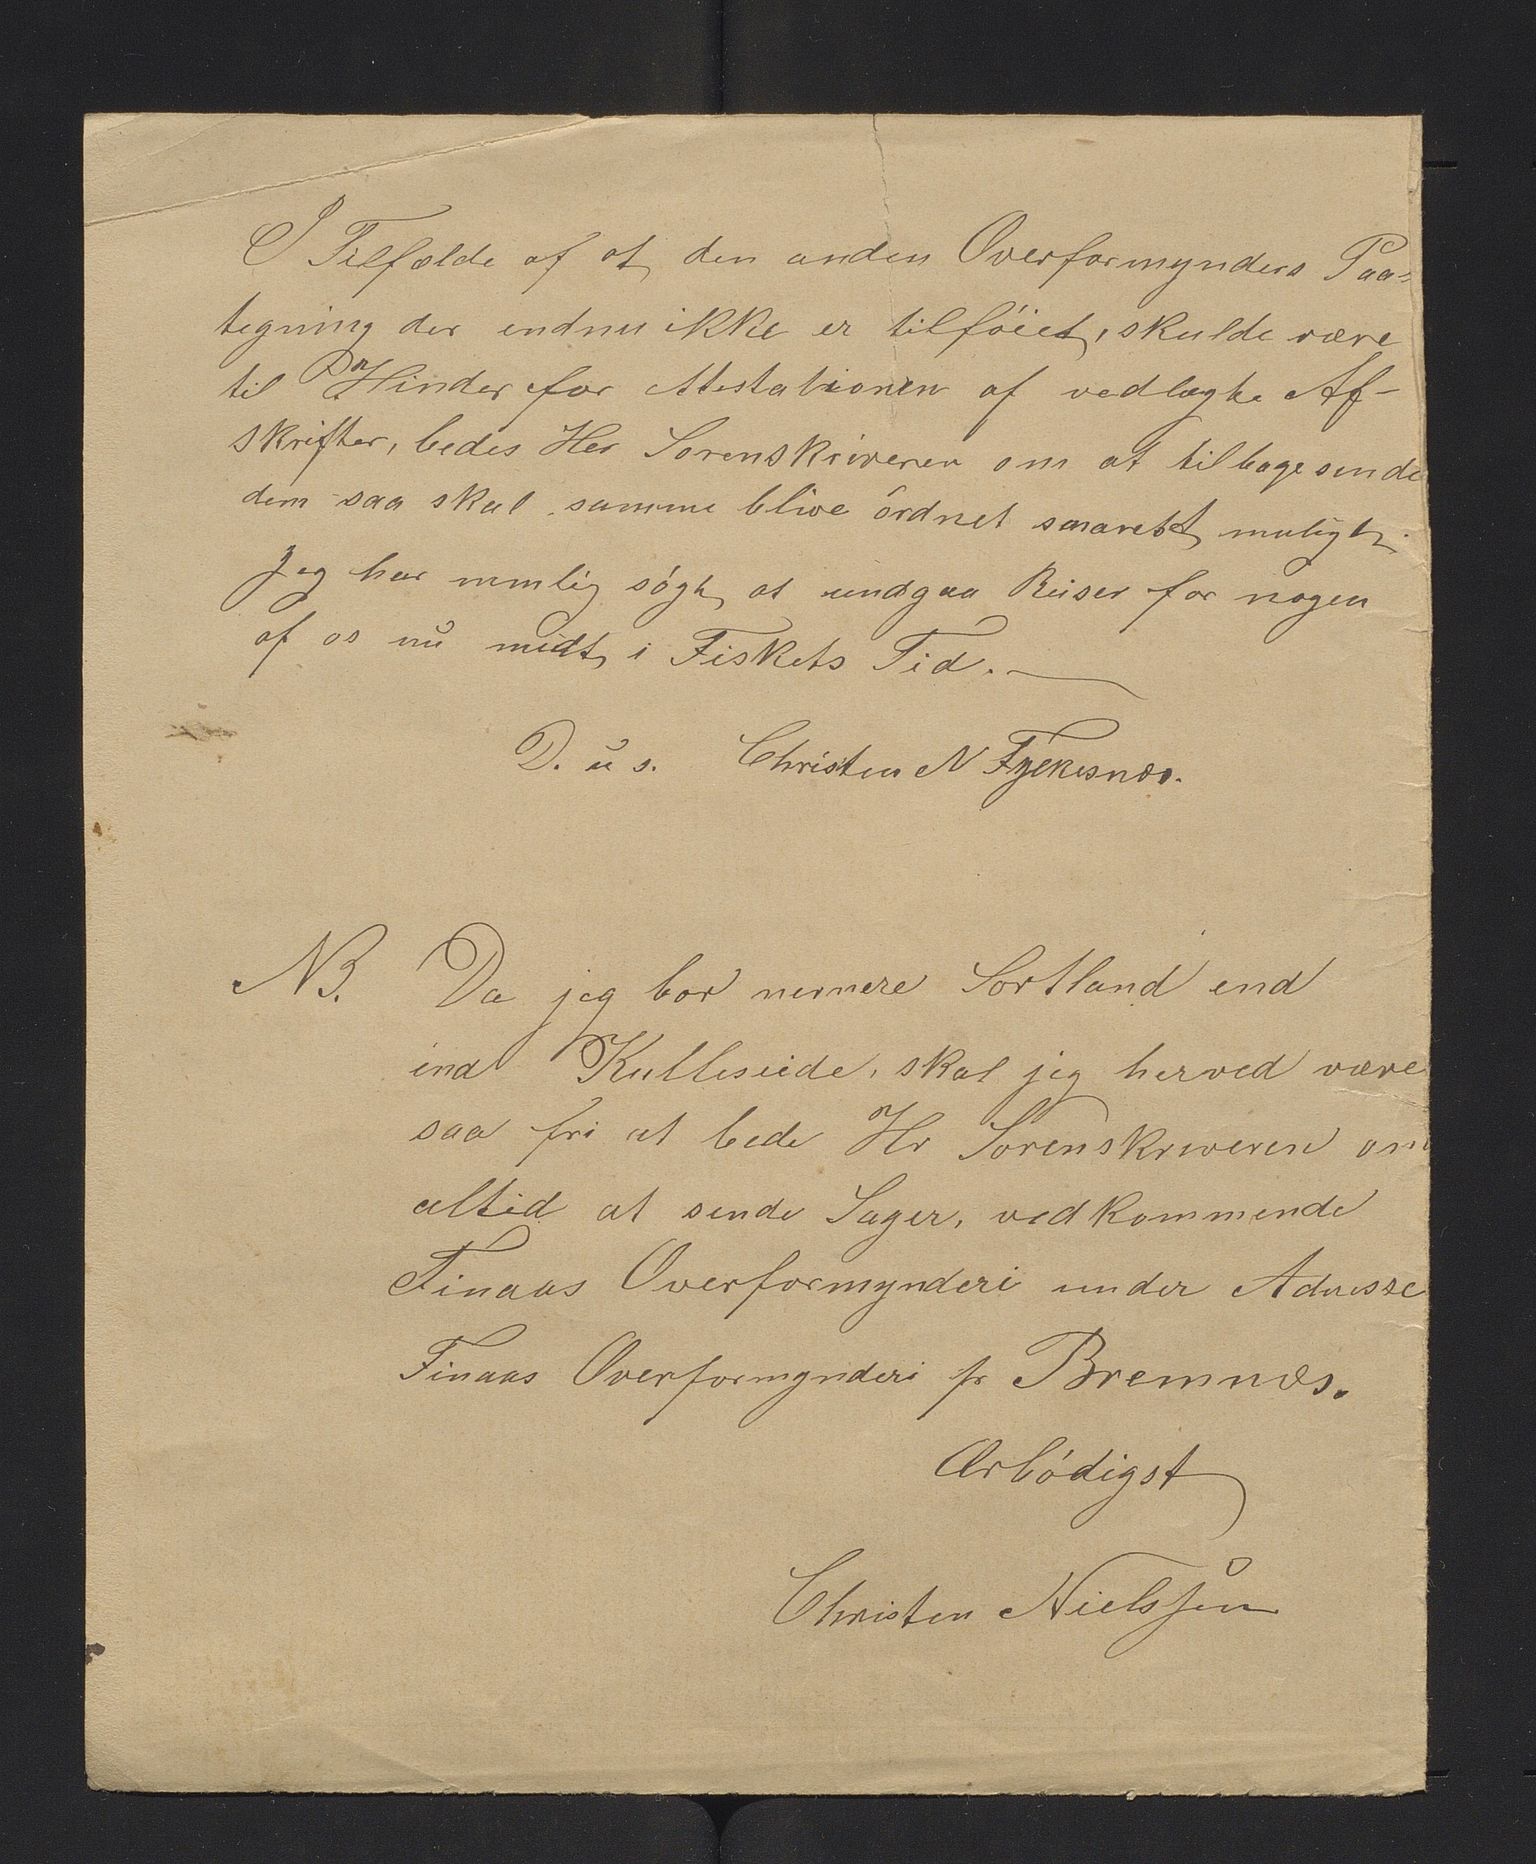 I Tilfælde af at den anden Overformynders Paa-
tegning der endnu ikke er tilföiet, skulde være
til Hinder for Attestationen af vedlagte Af-
skrifter, bedes Her Sorenskriveren om at tilbagesende
dem saa skal samme blive ordnet snarest muligt.
Jeg har nmlig sögt at undgaa Reiser for nogen
af os nu midt i Fiskets Tid.
D. u s. Christen N Fyekesnæs.
NB. Da jeg bor nermere Sortland end
end Kulleseide, skal jeg herved være
saa fri at bede Hr Sorenskriveren om
altid at sende Sager, vedkommende
Finaas Overformynderi under Adresse
Finaas Overformynderi pr Bremnæs.
Ærbödigst
Christen Nielssen